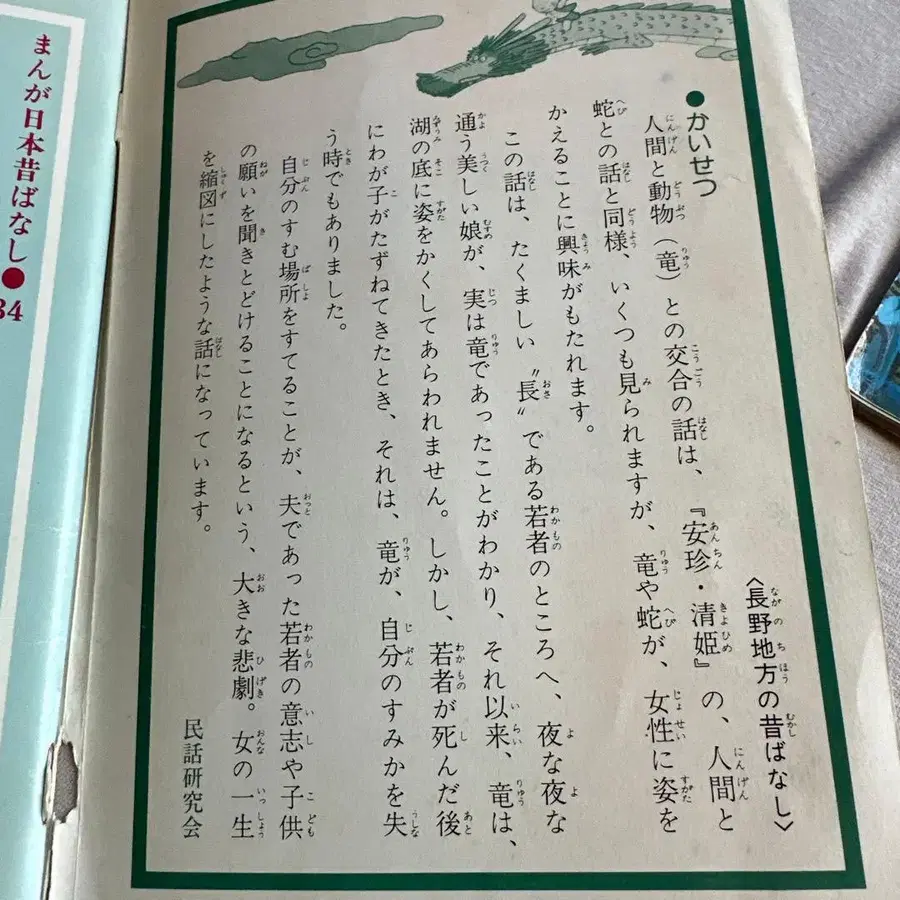 ●かいせつ
〈長野地方の昔ばなし〉
人間と動物（竜）との交合の話は、『安珍・清姫』の、人間と
蛇との話と同様、いくつも見られますが、竜や蛇が、女性に姿を
かえることに興味がもたれます。
この話は、たくましい〝長〟である若者のところへ、夜な夜な
通う美しい娘が、実は竜であったことがわかり、それ以来、竜は、
湖の底に姿をかくしてあらわれません。しかし、若者が死んだ後
にわが子がたずねてきたとき、それは、竜が、自分のすみかを失
う時でもありました。
自分のすむ場所をすてることが、夫であった若者の意志や子供
の願いを聞きとどけることになるという、大きな悲劇。女の一生
を縮図にしたような話になっています。
民話研究会
まんが日本昔ばなし●
34